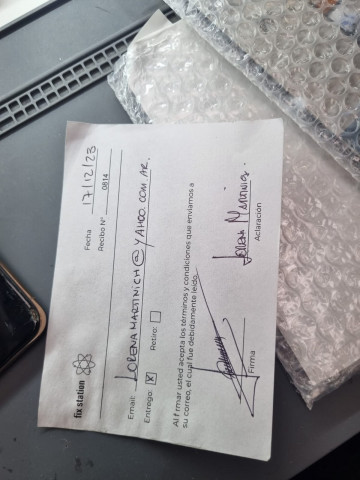 fix station
Fecha 17/12/23
Recibo N° 0814
Email: LORENAMARTINICH@YAHOO.COM.AR.
Entrego: X Retiro:
Al firmar usted acepta los términos y condiciones que enviamos a
su correo, el cual fue debidamente leído.
Firma
Aclaración